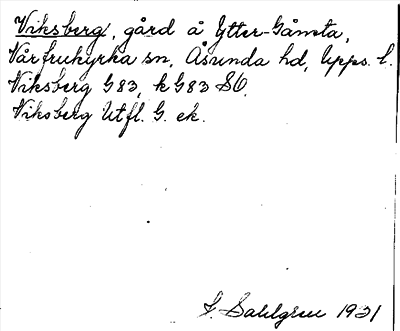 Viksberg, gård å Ytter-Gåmsta,
Vårfrukyrka sn, Åsunda hd, Upps. l.
Viksberg G83, k G83 SO.
Viksberg Utfl. G. ek.
J. Sahlgren 1931